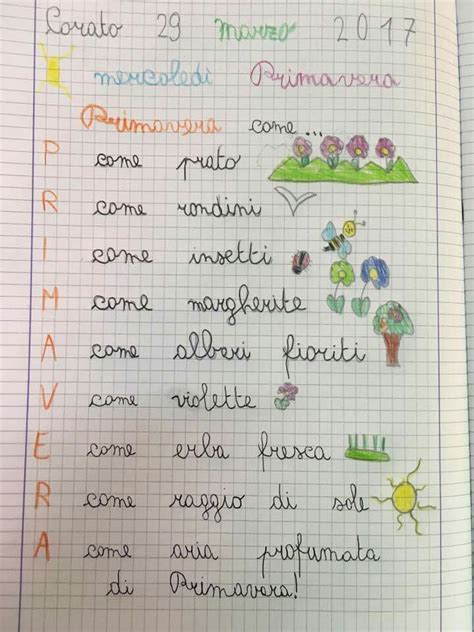 Corato 29 marzo 2017
mercoledì Primavera
Primavera come...
P come prato
R come rondini
I come insetti
M come margherite
A come alberi fioriti
V come violette
E come erba fresca
R come raggio di sole
A come aria profumata
di Primavera!